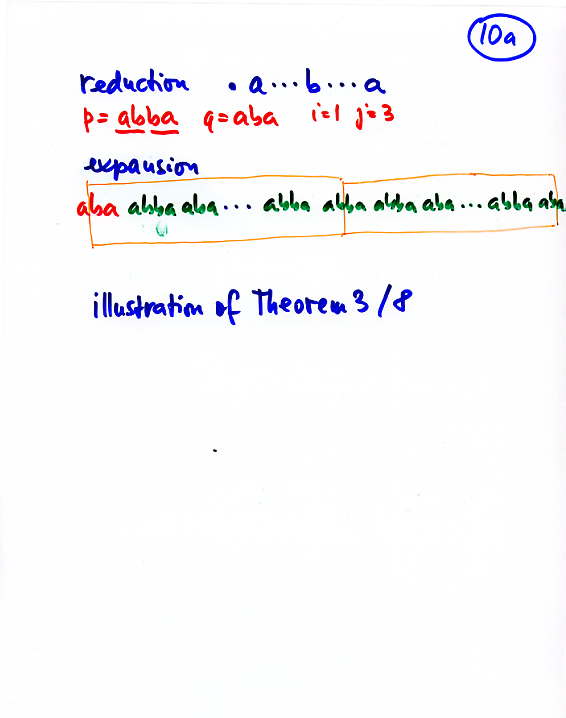 10a
reduction • a...b...a
p=abba q=aba i=1 j=3
expansion
aba abba aba... abba abba abba aba... abba aba
illustration of Theorem 3/8